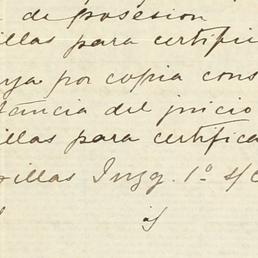 de posesion
illas para certific
ya por copia cons
tancia del juicio
illas para certifica
illas Juzg. 1º s/c